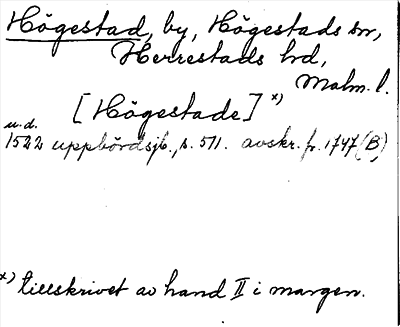 Högestad, by, Högestads sn,
Herrestads hd,
Malm. l.
[Högestade] x)
u.d.
1522 uppbördsjb., s. 511. avskr. fr. 1747 (B)
x) tillskrivet av hand II i margen.